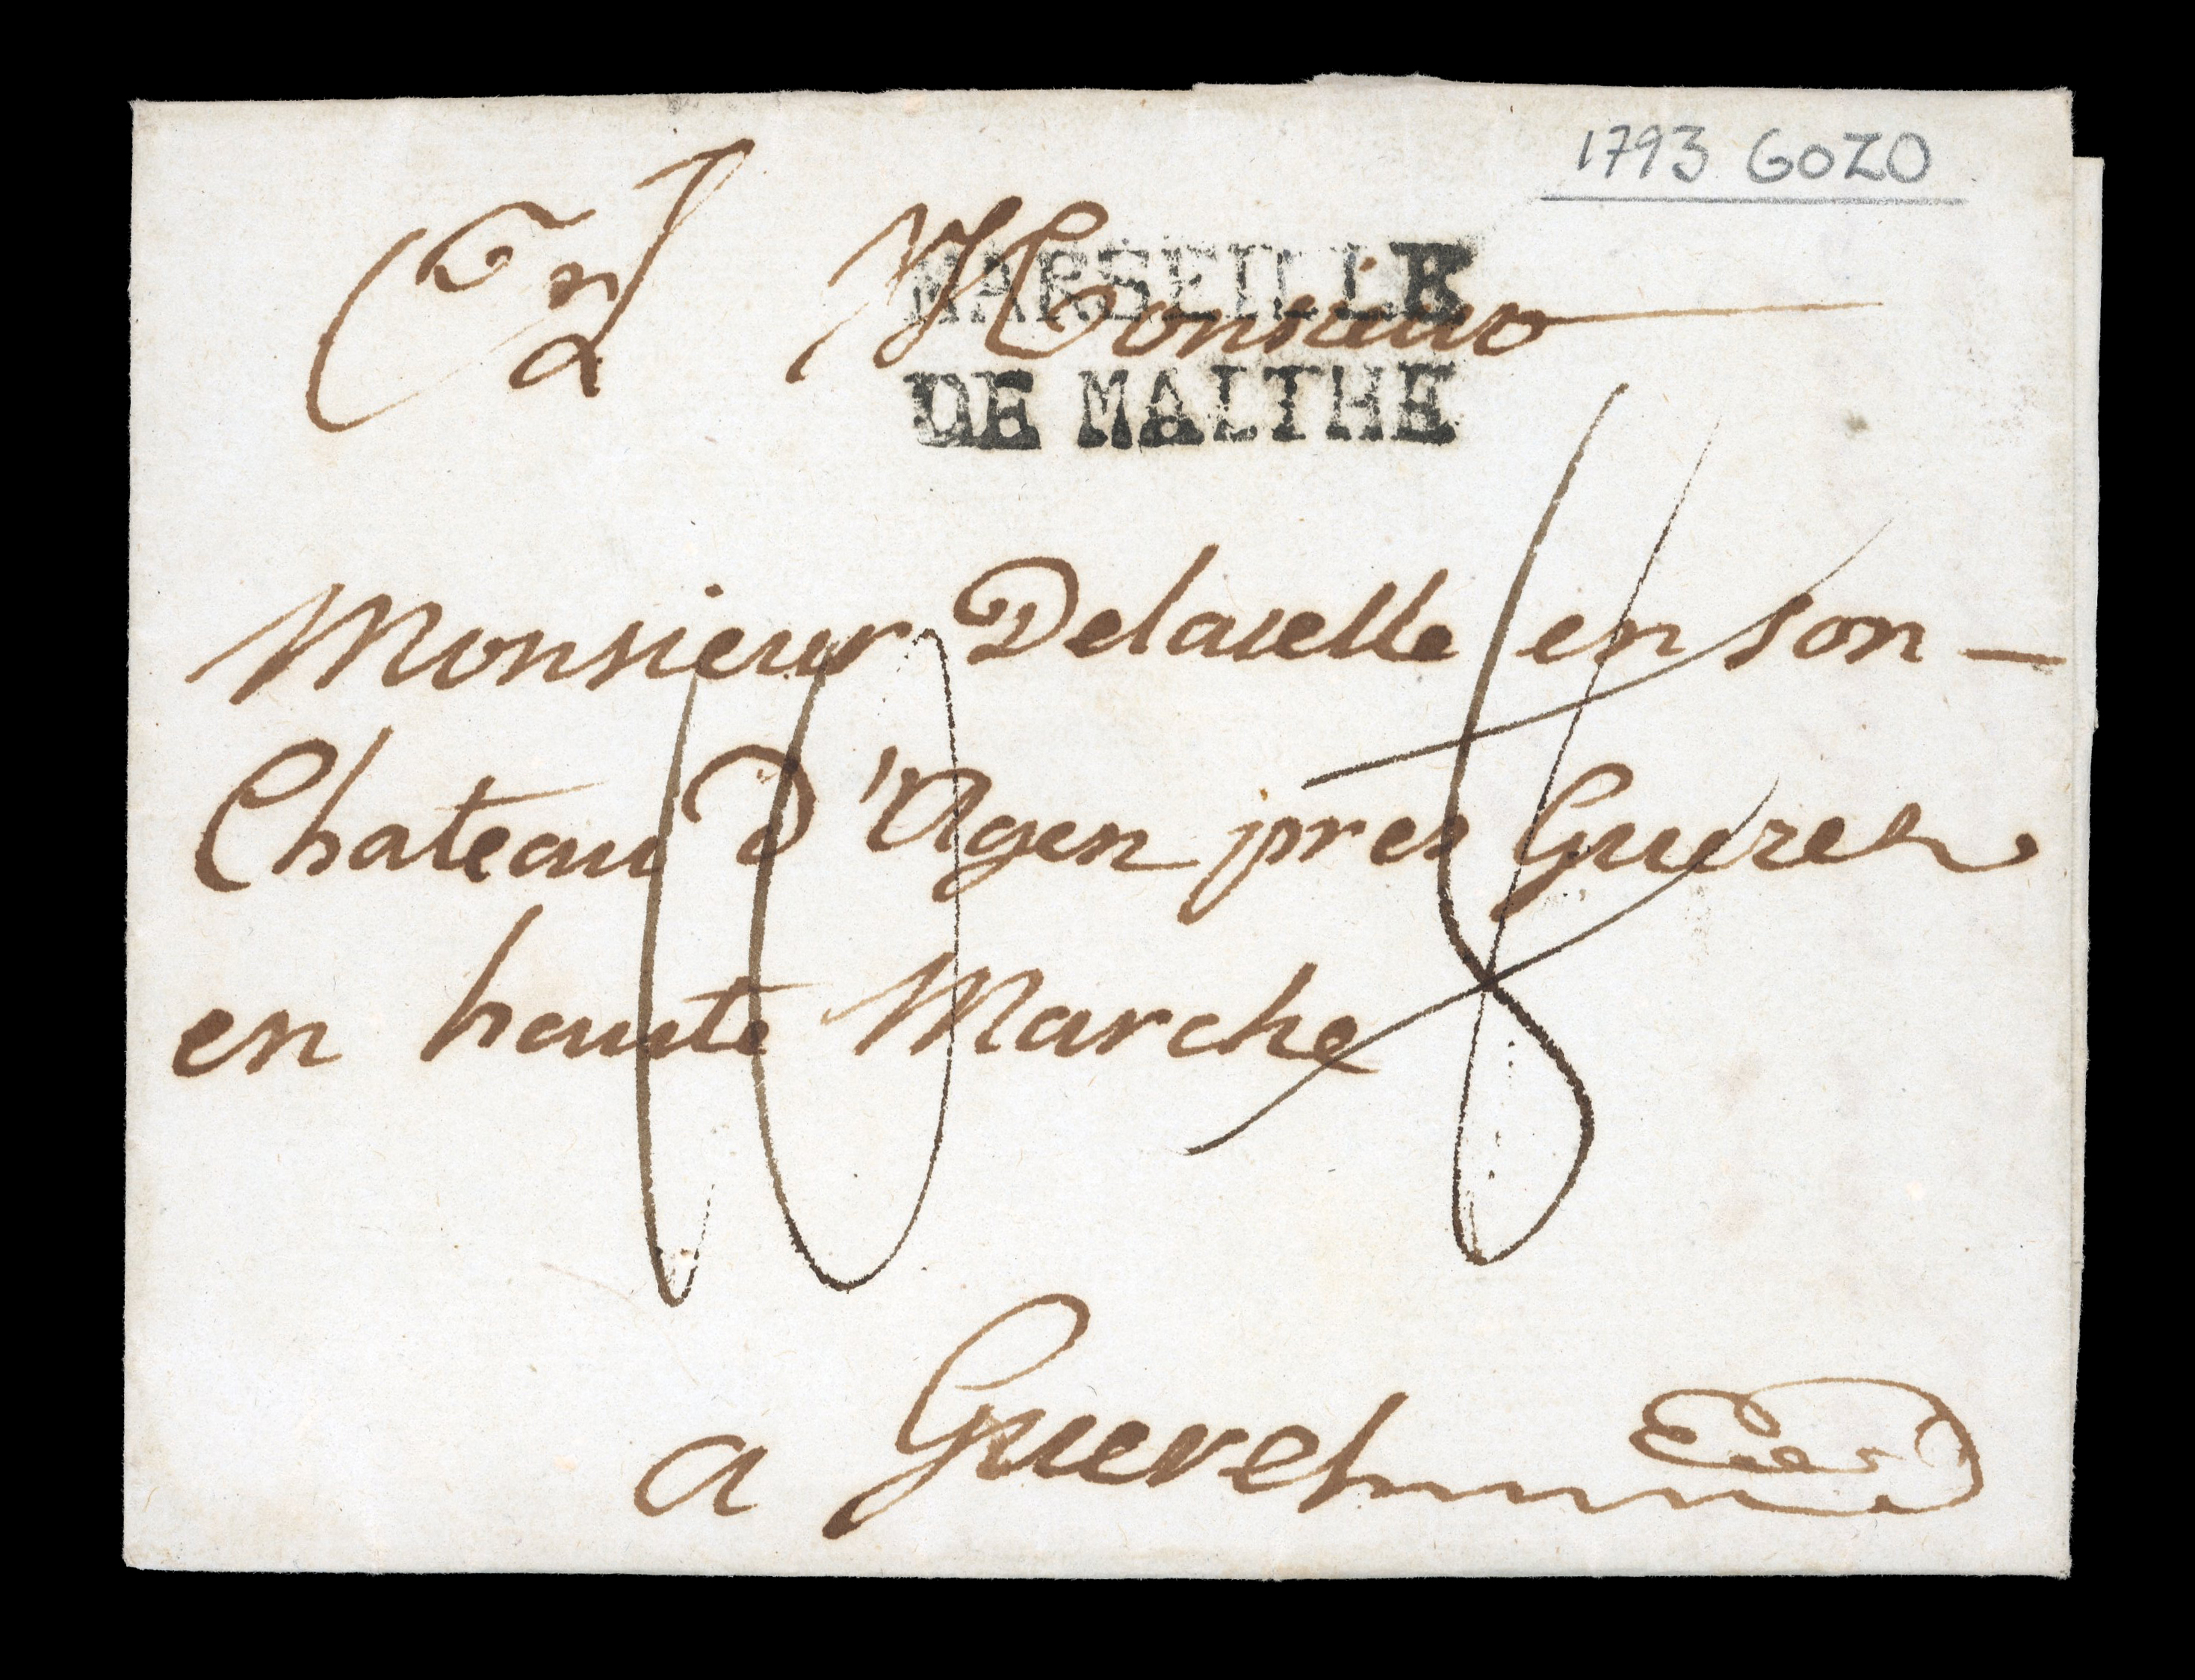 1793 GOZO
A Monsieur
MARSEILLE
DE MALTHE
Monsieur Delacelle en son —
Chateau D'Agen pres Gueret
en haute Marche
10 8
a Gueret